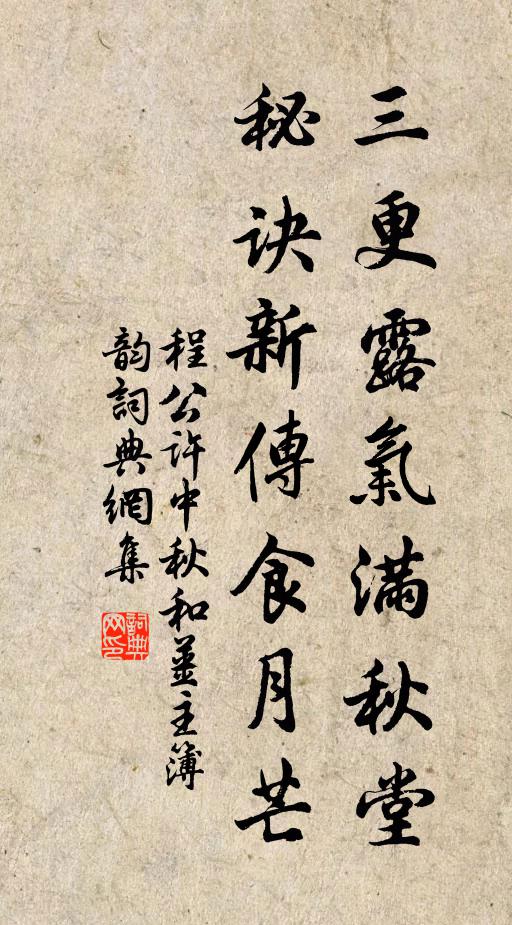 三更露氣滿秋堂
秘訣新傳食月芒
程公許中秋和薑主簿
韵詞典網集
詞典网印